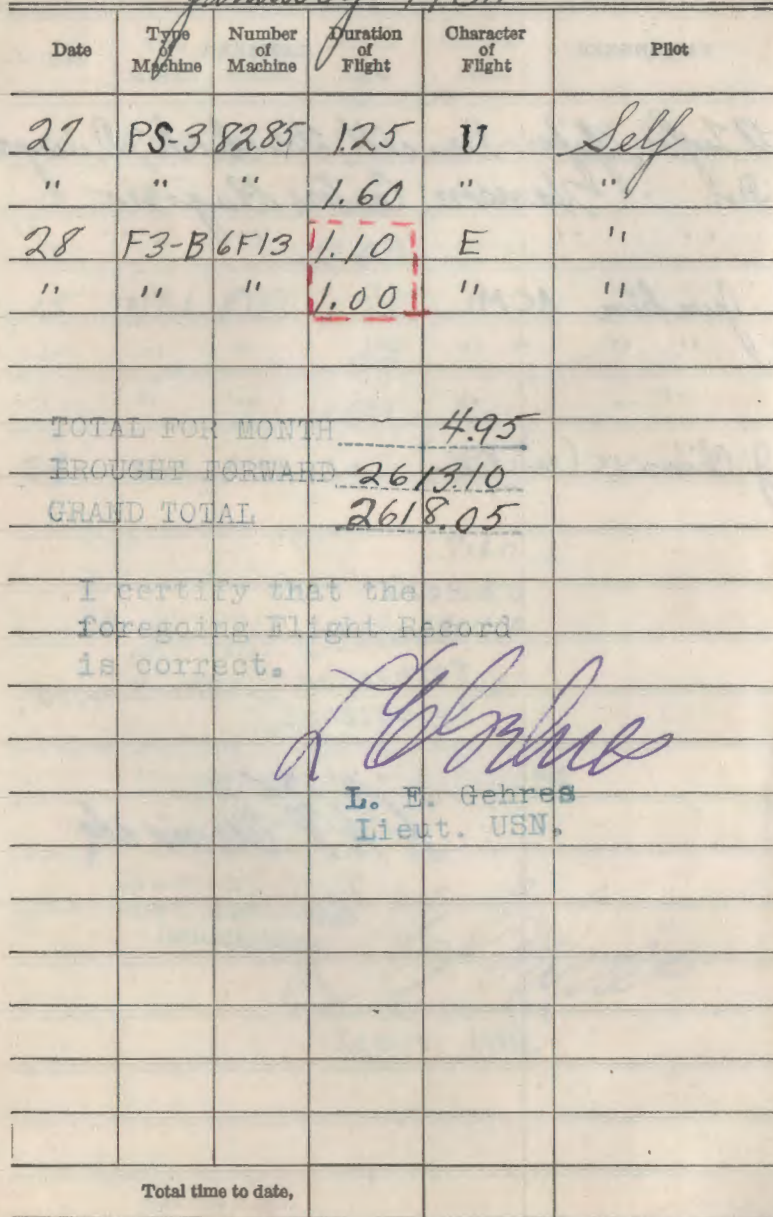 January
Date Type of Machine Number of Machine Duration of Flight Character of Flight Pilot
27 PS-3 8285 1.25 U Self
" " " 1.60 " "
28 F3-B 6F13 1.10 E "
" " " 1.00 " "
TOTAL FOR MONTH 4.95
BROUGHT FORWARD 2613.10
GRAND TOTAL 2618.05
I certify that the
foregoing Flight Record
is correct.
L E Gehres
L. E. Gehres
Lieut. USN.
Total time to date,